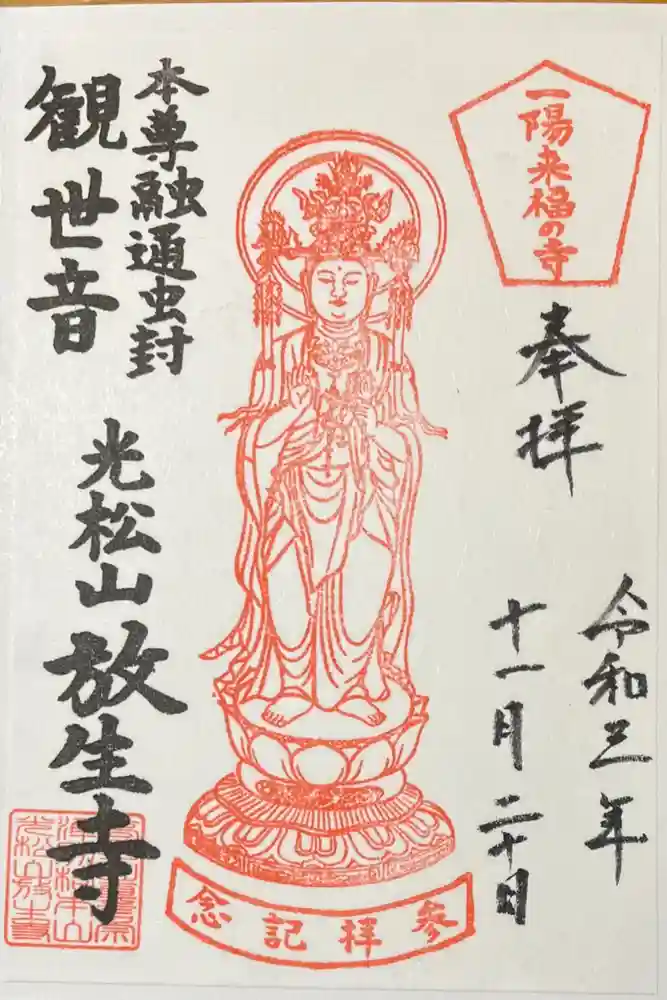 一陽来福の寺
奉拝
令和三年
十一月二十日
参拝記念
本尊融通虫封
観世音
光松山放生寺